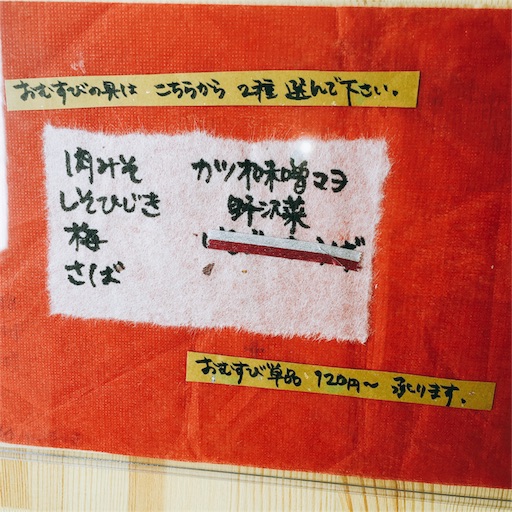 おむすびの具は こちらから 2種 選んで下さい。
肉みそ
しそひじき
梅
さば
ガツ味噌マヨ
野沢菜
おむすび単品 120円〜 承ります。